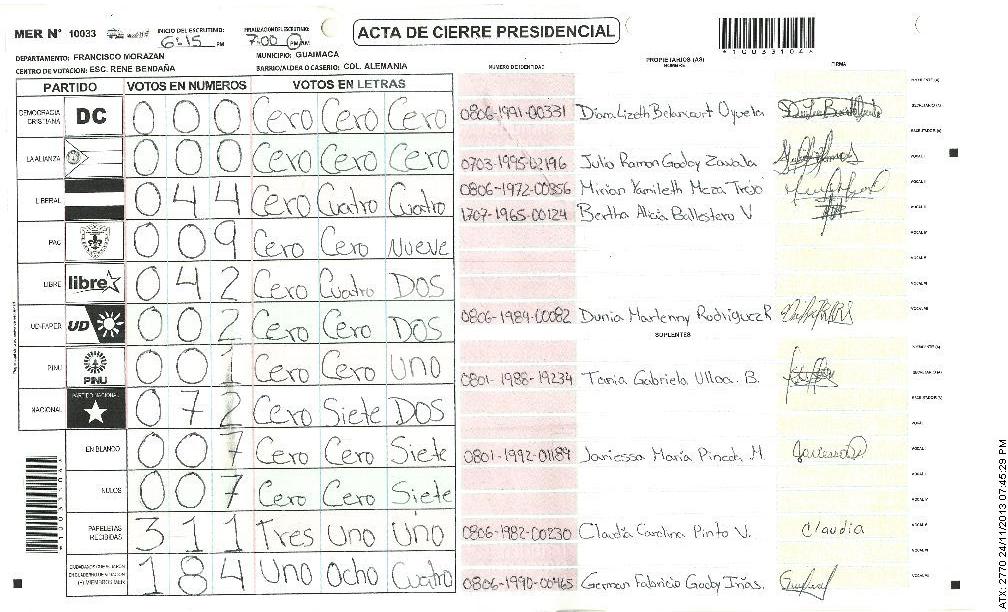 MER N° 10033
INICIO DEL ESCRUTINIO: 6:15 PM
FINALIZACION DEL ESCRUTINIO: 7:00 PM
ACTA DE CIERRE PRESIDENCIAL
*10033104*
DEPARTAMENTO: FRANCISCO MORAZAN
MUNICIPIO: GUAIMACA
CENTRO DE VOTACION: ESC. RENE BENDAÑA
BARRIO/ALDEA O CASERIO: COL. ALEMANIA
NUMERO DE IDENTIDAD
PROPIETARIOS (AS)
NOMBRE
FIRMA
PARTIDO VOTOS EN NUMEROS VOTOS EN LETRAS
DEMOCRACIA CRISTIANA DC 0 0 0 Cero Cero Cero
LA ALIANZA 0 0 0 Cero Cero Cero
LIBERAL 0 4 4 Cero Cuatro Cuatro
PAC 0 0 9 Cero Cero Nueve
LIBRE libre 0 4 2 Cero Cuatro DOS
UD-FAPER UD 0 0 2 Cero Cero DOS
PINU PINU 0 0 1 Cero Cero UNO
NACIONAL PARTIDO NACIONAL 0 7 2 Cero Siete DOS
EN BLANCO 0 0 7 Cero Cero Siete
NULOS 0 0 7 Cero Cero Siete
PAPELETAS RECIBIDAS 3 1 1 Tres Uno Uno
CIUDADANOS QUE VOTARON EN CUADERNO DE VOTACION (+) MIEMBROS MER 1 8 4 Uno Ocho Cuatro
0806-1991-00331 Diana Lizeth Betancourt Oyuela
0703-1995-02196 Julio Ramon Godoy Zavala
0806-1972-00356 Mirian Yamileth Meza Trejo
1707-1965-00124 Bertha Alicia Ballestero V
0806-1984-00082 Dunia Marlenny Rodriguez R
SUPLENTES
0801-1988-19234 Tania Gabriela Ulloa. B.
0801-1992-01189 Janiessa María Pineda M
0806-1982-00230 Claudia Carolina Pinto V. Claudia
0806-1990-00465 German Fabricio Godoy Irías.
*10033104*
ATX-2770 24/11/2013 07:45:29 PM